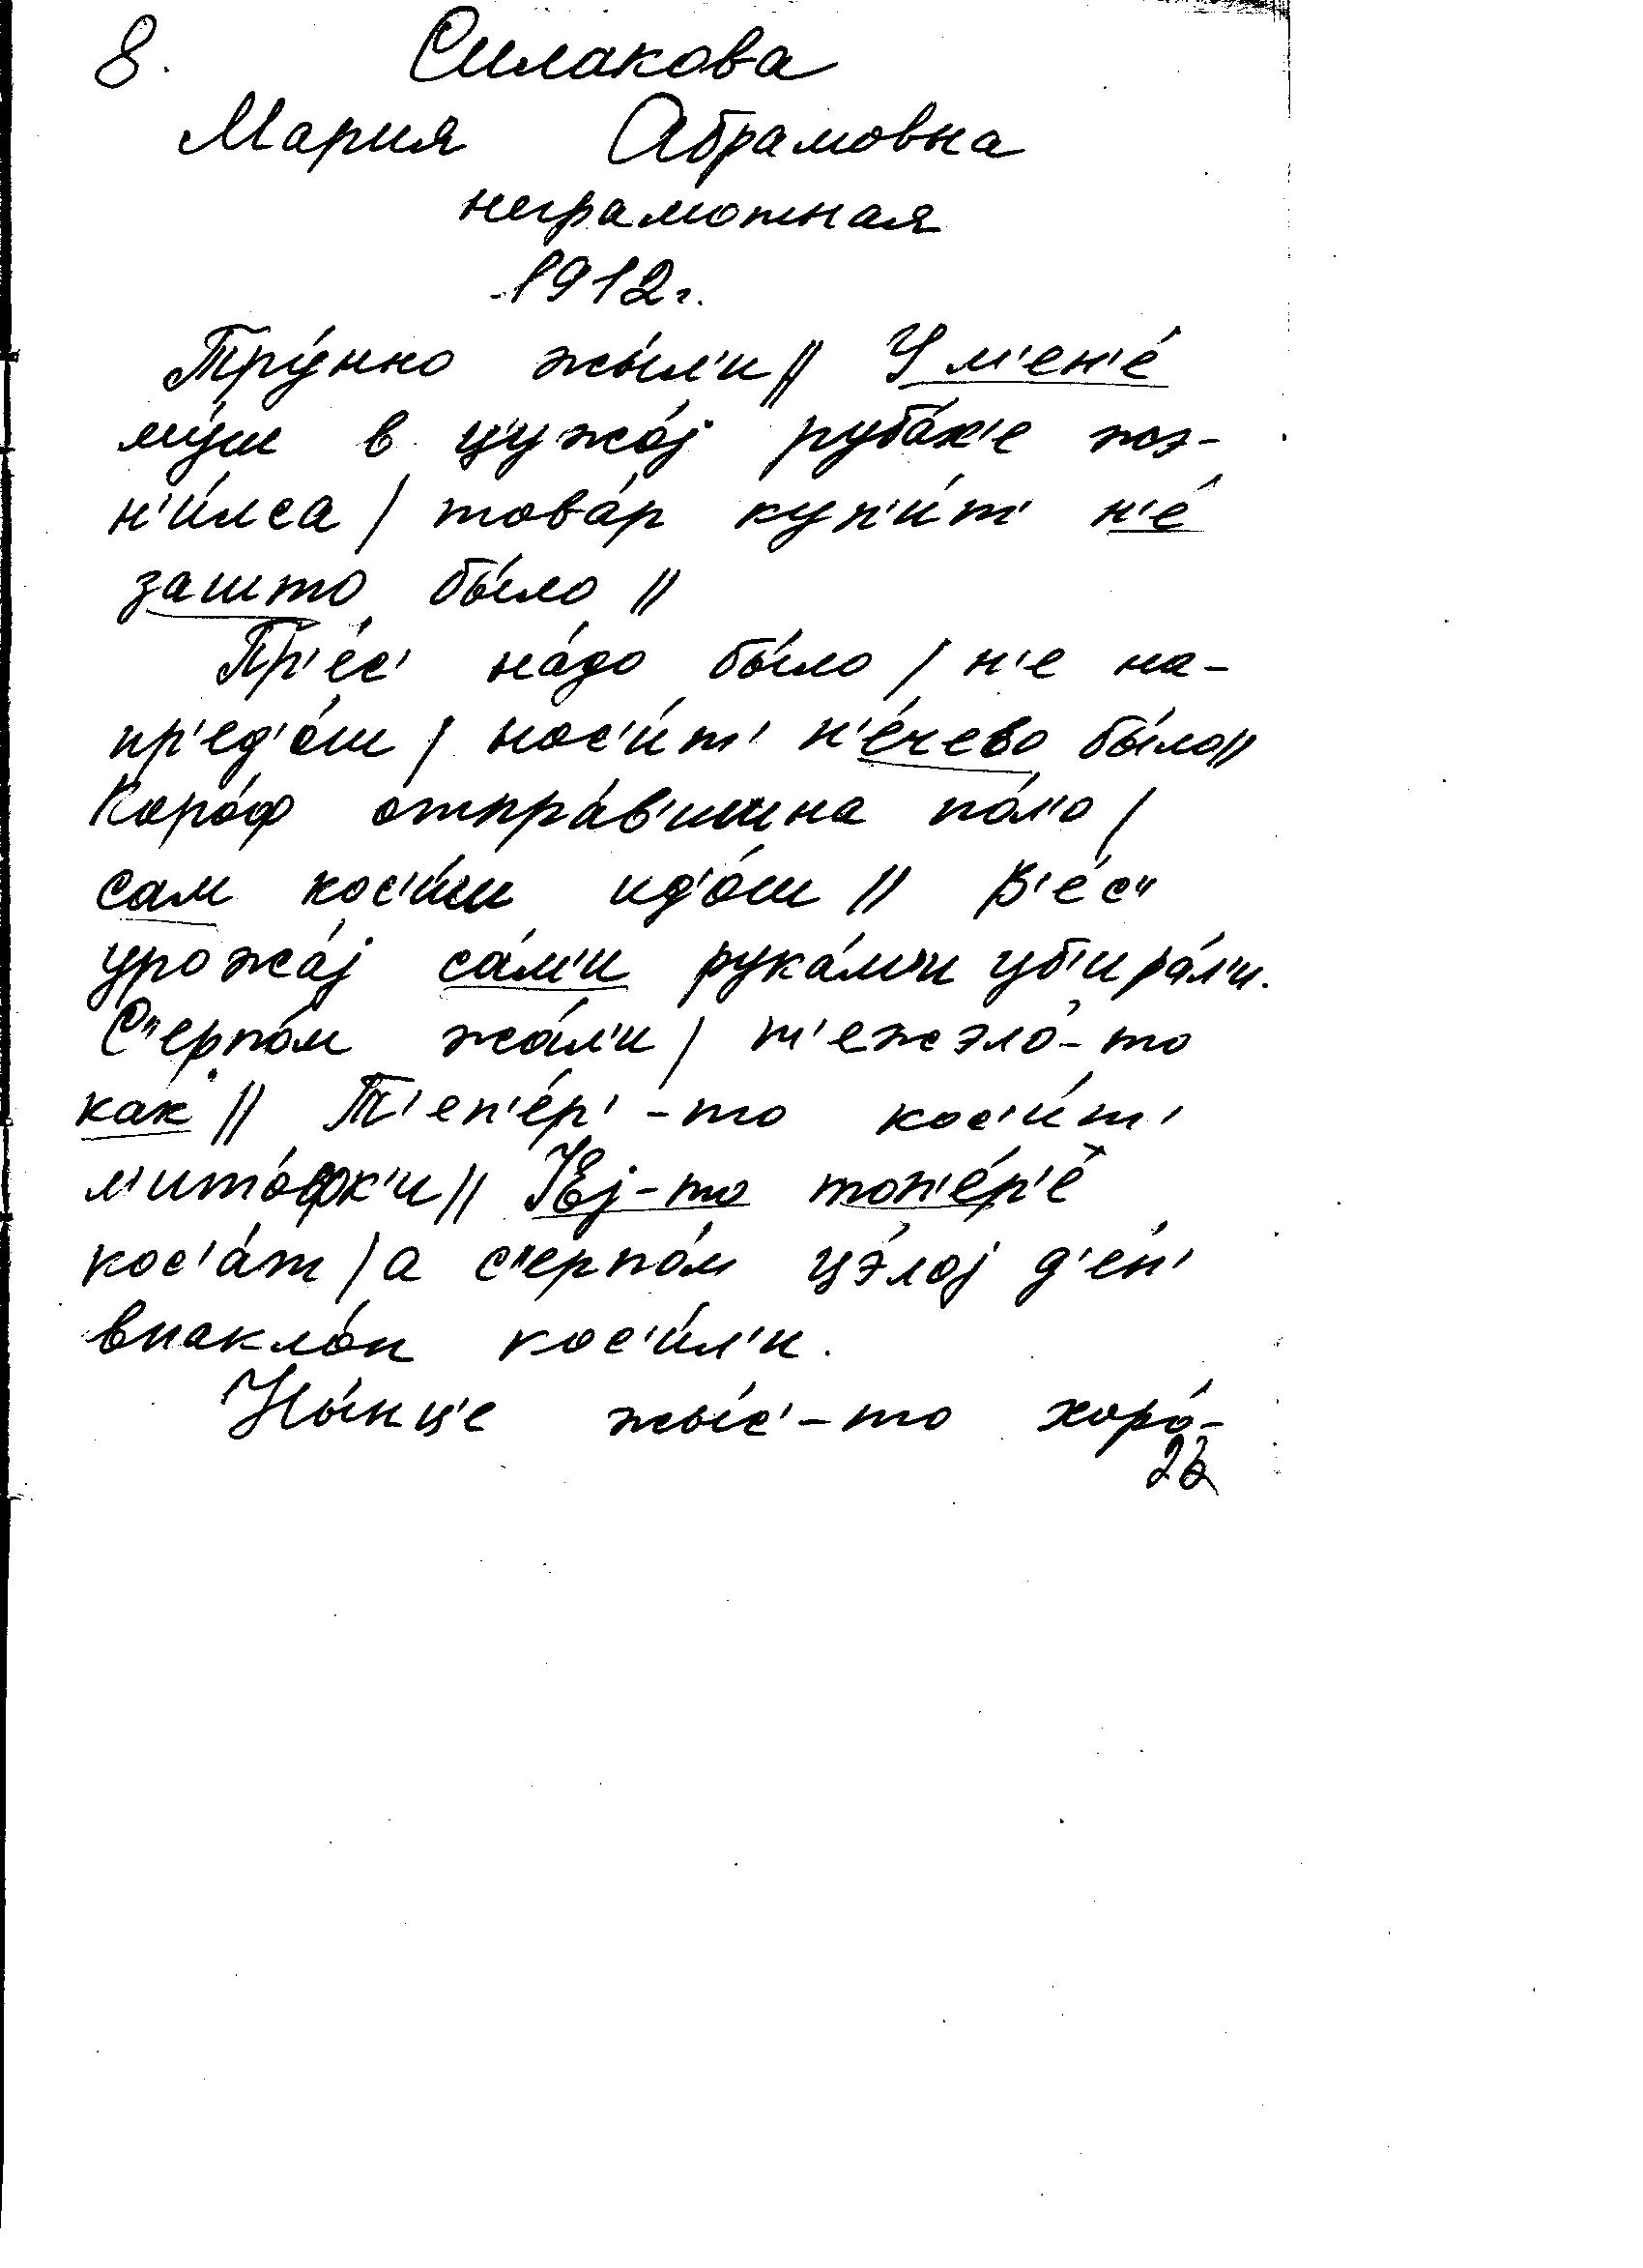 8. Силакова
Мария Абрамовна
неграмотная
1912 г.
Тру́нно жы́л'и || У м'ен'е́
му́ш в ц'ужо́j руба́х'е жэ-
н'и́лса / това́р куп'и́т' н'е́
зашто бы́ло ||
Пр'е́с' на́до бы́ло / н'е на-
пр'ед'о́ш / нос'и́т' н'е́чево бы́ло ||
Коро́ф отпра́в'иш на по́л'о /
сам кос'и́ш ид'о́ш || В'е́с"
урожа́j са́м'и рука́м'и уб'ира́л'и.
С"ерпо́м жа́л'и / т'ежэло́-то
как || Т'еп'е́р'-то кос'и́т'
м'ито́фк'и || Е́j-то топ'е́р'е
кос'а́т / а с"ерпо́м цэ́лоj д'е́н'
внакло́н кос'и́л'и.
Ны́нц'е жы́с'-то хоро́-
23